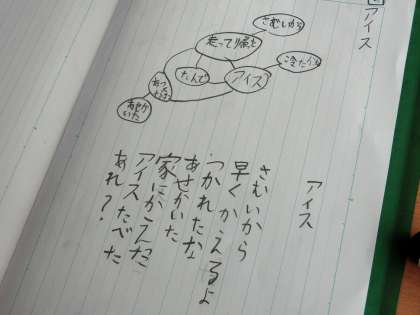 アイス
さむいから
走って帰る
冷たい
たんで
アイス
あせかいた
アイス
さむいから
早くかえるよ
つかれたな
あせかいた
家にかえった
アイスたべた
あれ？